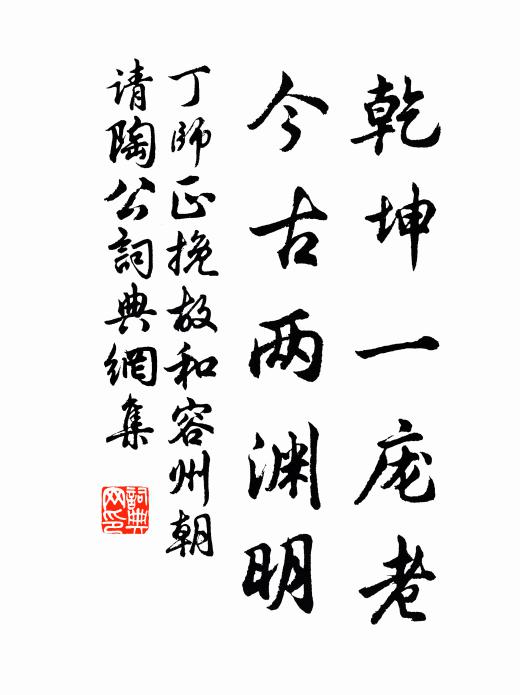 乾坤一庞老
今古两渊明
丁師正挽故和容州朝
请陶公詞典網集
詞典网印